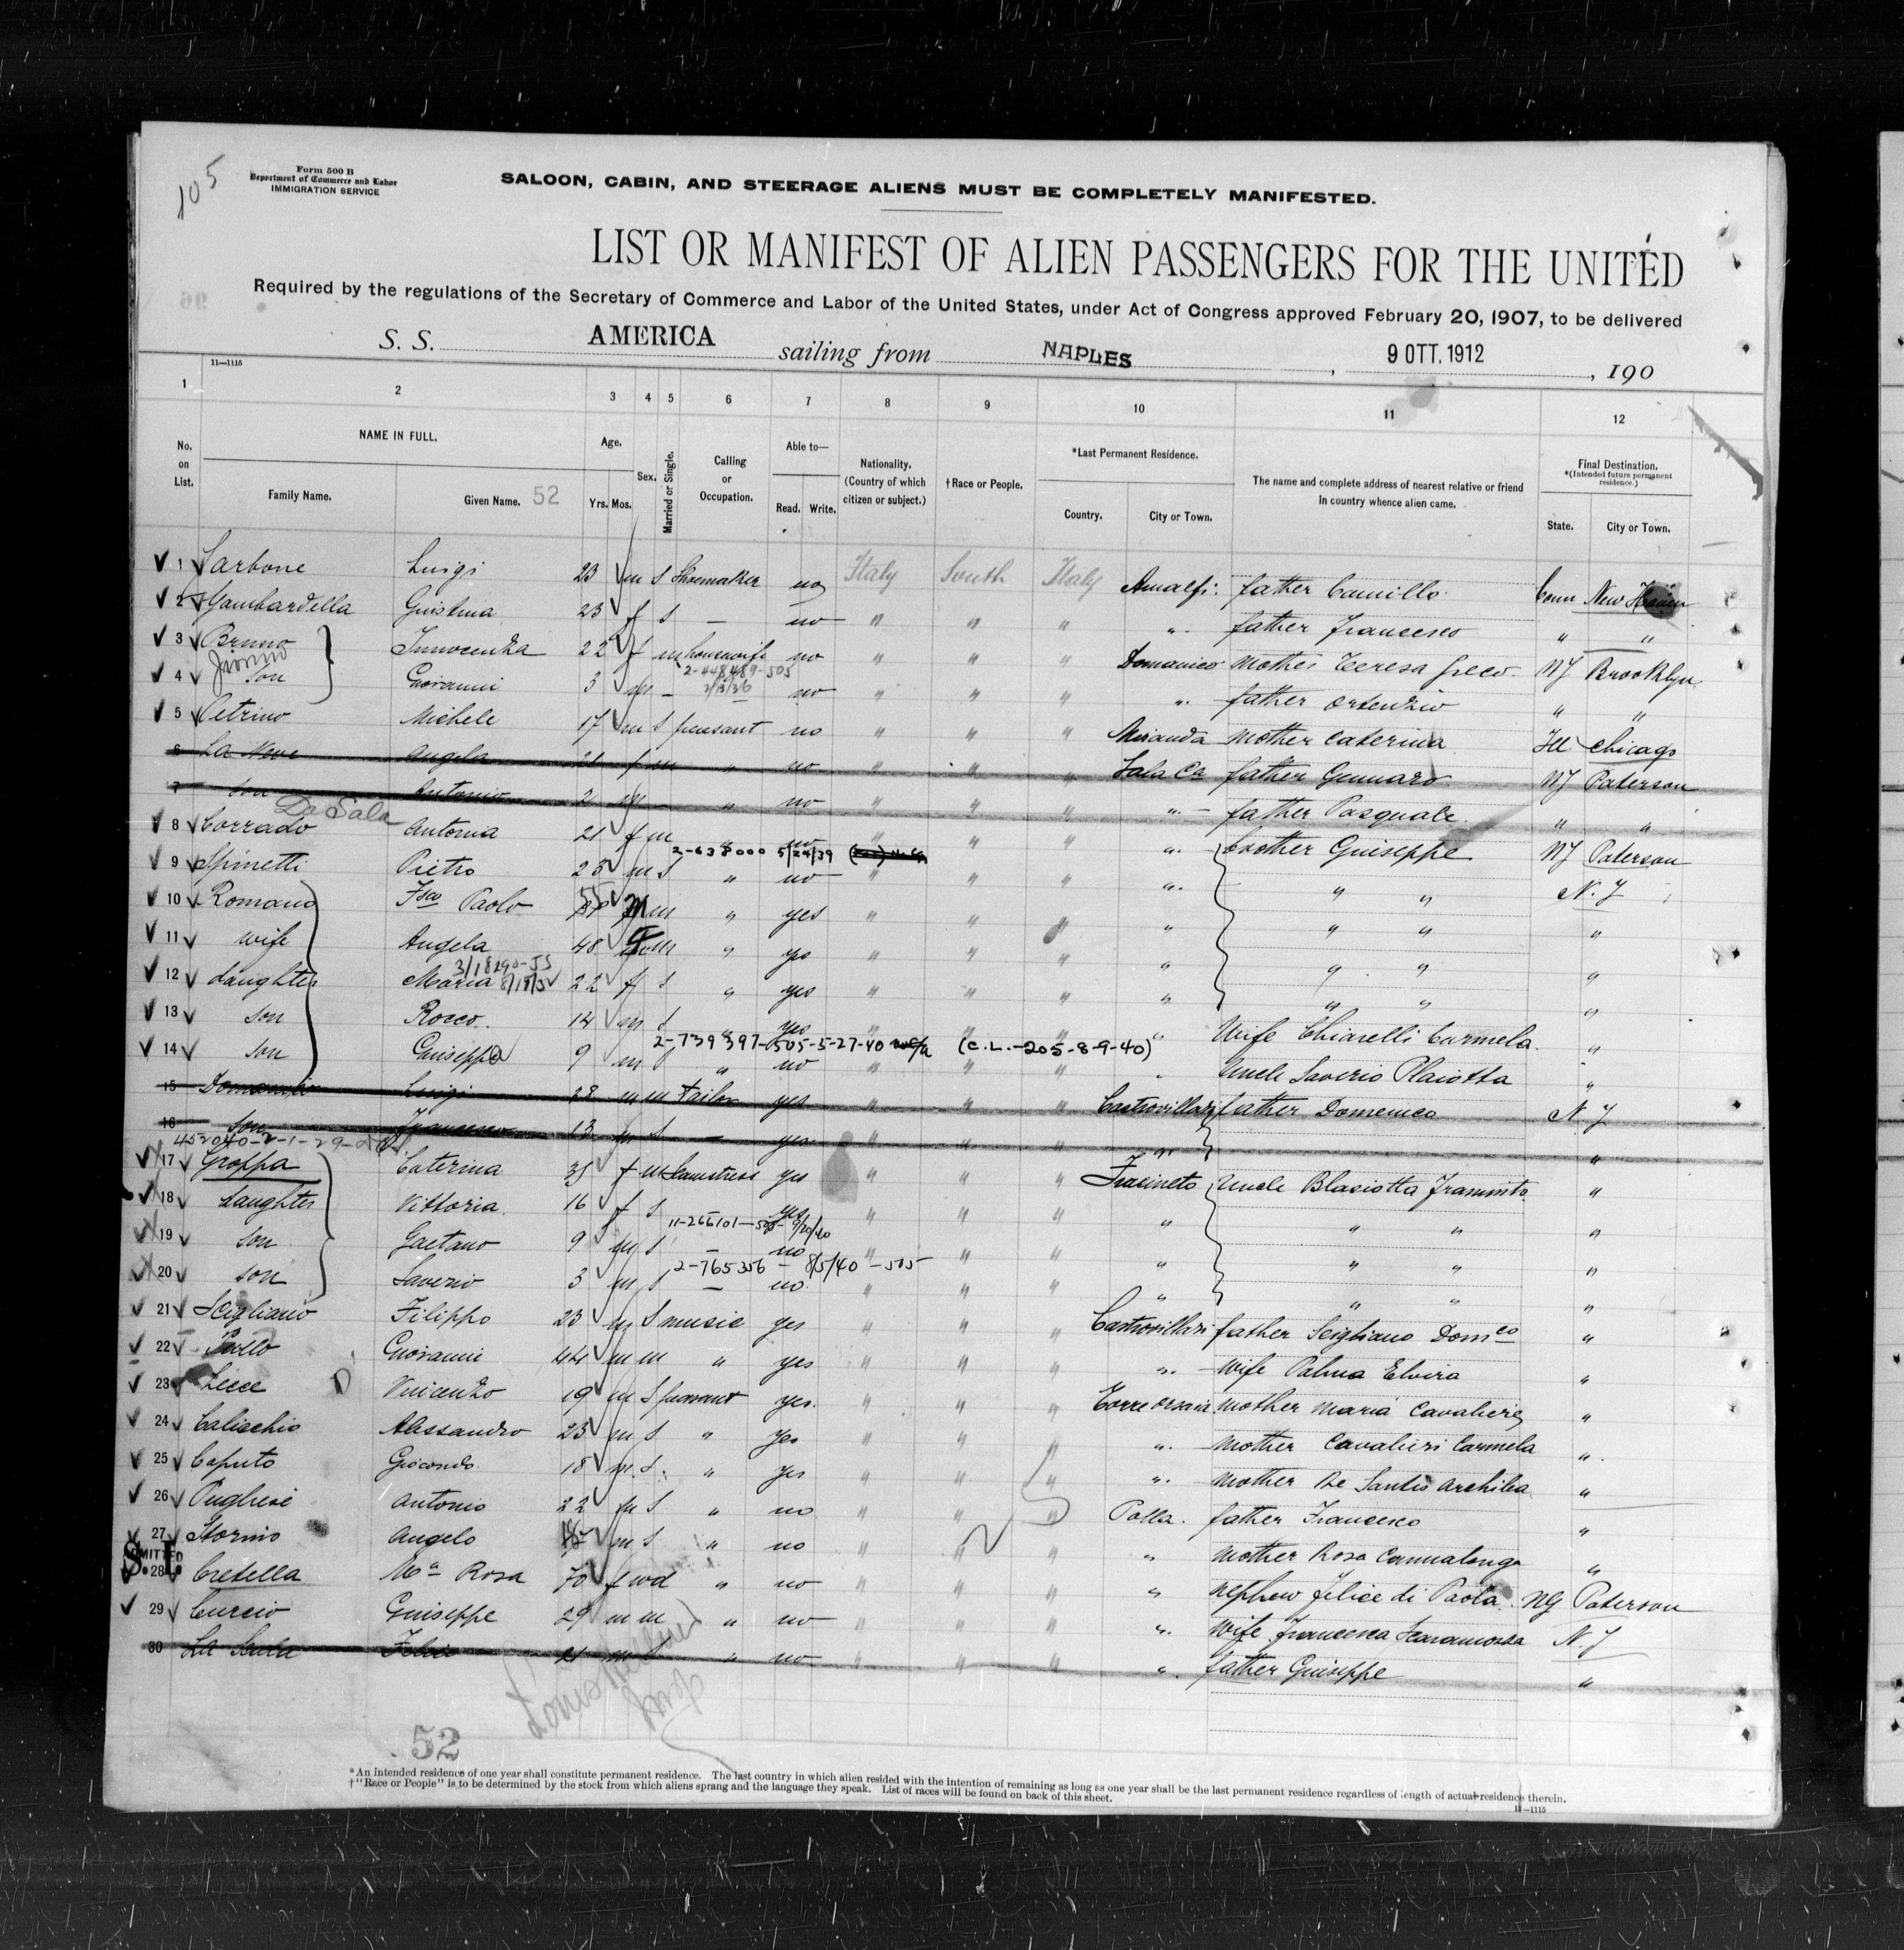 105
Form 500 B
Department of Commerce and Labor
IMMIGRATION SERVICE
SALOON, CABIN, AND STEERAGE ALIENS MUST BE COMPLETELY MANIFESTED.
LIST OR MANIFEST OF ALIEN PASSENGERS FOR THE UNITED
Required by the regulations of the Secretary of Commerce and Labor of the United States, under Act of Congress approved February 20, 1907, to be delivered
S. S. AMERICA sailing from NAPLES, 9 OTT. 1912, 190
11—1115
1 2 3 4 5 6 7 8 9 10 11 12
No. on List.
NAME IN FULL.
Family Name.
Given Name. 52
Age.
Yrs. Mos.
Sex.
Married or Single.
Calling or Occupation.
Able to—
Read. Write.
Nationality. (Country of which citizen or subject.)
†Race or People.
*Last Permanent Residence.
Country.
City or Town.
The name and complete address of nearest relative or friend in country whence alien came.
Final Destination.
*(Intended future permanent residence.)
State.
City or Town.
1 Luigi 23 m S Shoemaker no Italy South Italy Amalfi. father Camillo Conn New Haven
2 Gambardella Giustina 23 f S — no " " " " father Francesco " "
3 Bruno Innocenza 22 f m housewife no " " " Domanico mother Teresa Greco. NY Brooklyn
2-448489-505
2/13/36
4 son Giovanni 3 m — no " " " " father Ortenzio " "
5 Petrino Michele 17 m S peasant no " " " Miranda mother Caterina Ill Chicago
6 La Neve Angela 21 f m " no " " " Sala Ca father Gennaro NJ Paterson
7 son Antonio 2 m — " no " " " " father Pasquale " "
De Sala
8 Corrado Antonia 21 f m " no " " " " brother Guiseppe NJ Paterson
2-638000 5/24/39
9 Spinetti Pietro 23 m S " no " " " " " " N. J
10 Romano Fsco Paolo 55 m m " yes " " " " " "
11 wife Angela 48 f m " yes " " " " " " "
3/18290-JS
12 daughter Maria 22 f S " yes " " " " " " "
13 son Rocco 14 m S " yes " " " " Wife Chiarelli Carmela "
2-739397-505-5-27-40 (C.L.-205-8-9-40)
14 son Guiseppe 9 m S " no " " " Uncle Saverio Plaiotta "
15 Luigi 28 m m Tailor yes " " " Castrovillari father Domenico N. J
16 son Francesco 13 m S — yes " " " " "
17 Groppa Caterina 35 f m Seamstress yes " " " Frasineto Uncle Blasiotta "
18 daughter Vittoria 16 f S yes " " " " " " "
11-266101-505-9/20/40
19 son Gaetano 9 m S — no " " " " " " "
2-765356 - 8/5/40 - 505
20 son Saverio 3 m S — no " " " " " " "
21 Scigliano Filippo 23 m S music yes " " " Castrovillari father Scigliano Domco "
22 Giovanni 44 m m " yes " " " " wife Palma Elvira "
23 Lecce Vincenzo 19 m S peasant yes. " " " mother Maria Cavaliere "
24 Alessandro 23 m S " yes " " " " mother Cavalieri Carmela "
25 Caputo Giocondo 18 m S. " yes " " " " mother De Santis "
26 Pugliese Antonio 22 m S " no " " " Polla. father Francesco "
27 Storino Angelo m S " no " " " " mother Rosa Cannalonga "
ADMITTED
S. I.
28 Cretella Ma Rosa 70 f wd " no " " " " nephew Felice di Paola NJ Paterson
29 Curcio Guiseppe 29 m m " no " " " " wife Francesca N. J
30 La Felice 21 m S " no " " " " father Guiseppe "
52
*An intended residence of one year shall constitute permanent residence. The last country in which alien resided with the intention of remaining as long as one year shall be the last permanent residence regardless of length of actual residence therein.
†"Race or People" is to be determined by the stock from which aliens sprang and the language they speak. List of races will be found on back of this sheet.
11—1115